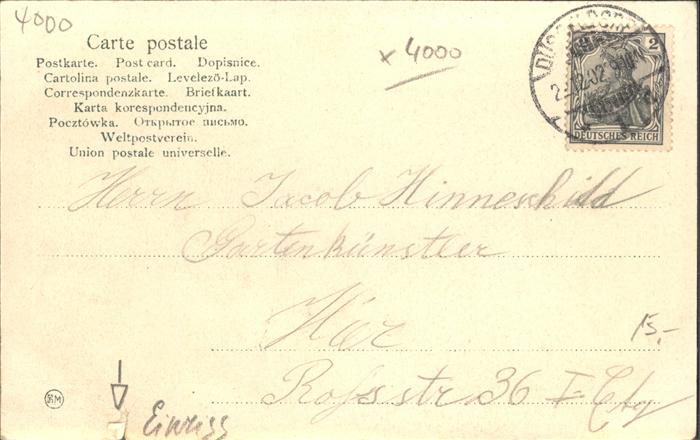 4000
Carte postale
Postkarte. Post card. Dopisnice.
Cartolina postale. Levelező-Lap.
Correspondenzkarte. Briefkaart.
Karta korespondencyjna.
Pocztówka. Открытое письмо.
Weltpostverein.
Union postale universelle.
x 4000
2
DEUTSCHES REICH
Herrn Jacob Hinneschild
Gartenkünstler
Hier
15,-
Rossstr 36 I Ctg
Einriss